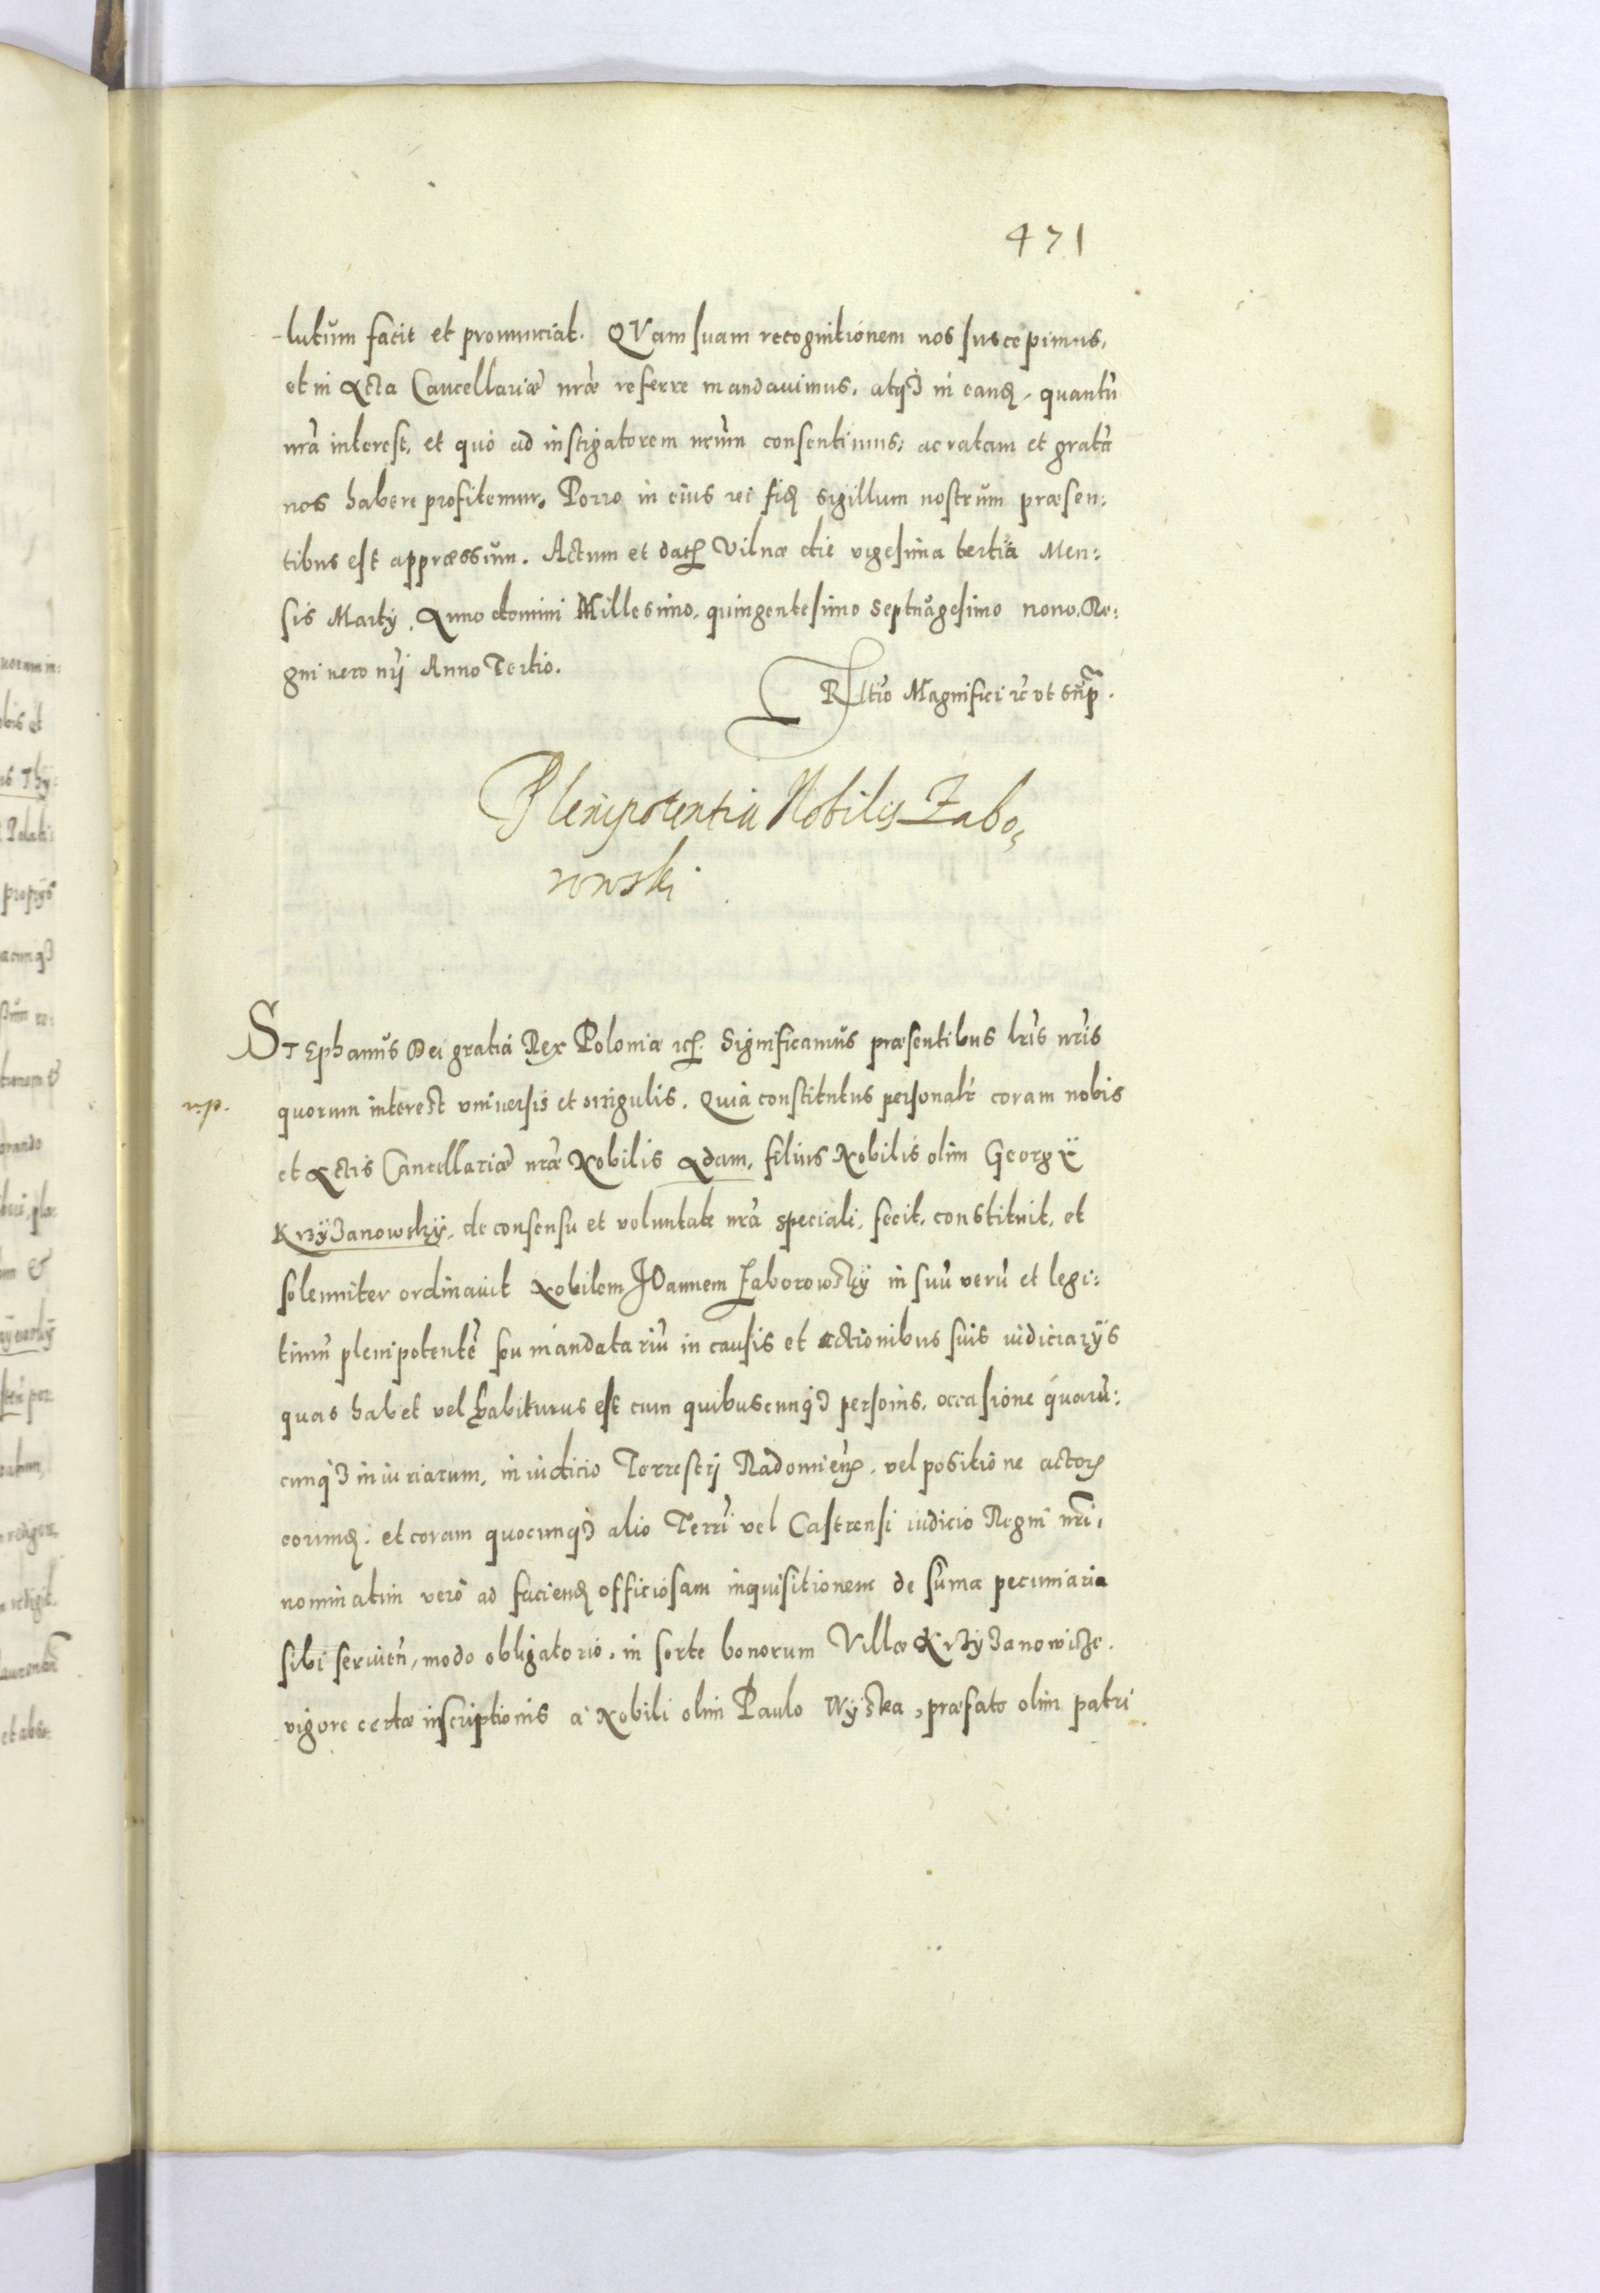 471
-lutum facit et pronunciat. QVam suam recognitionem nos suscepimus,
et in Acta Cancellariæ nræ referre mandauimus, atq3 in eand, quantu
nra interest, et quo ad instigatorem nrum consentimus: ac ratam et grata
nos habere profitemur. Porro in eius rei fid sigillum nostrum præsen:
tibus est appræssum. Actum et dat Vilnæ die vigesima tertia Men:
sis Martÿ. Anno domini Millesimo, quingentesimo septuagesimo nono, Re:
gni uero nri Anno Tertio.
Rltio Magnifici rc vt supr.
Plenipotentia Nobilis Zabo,
rowski
STephanus Dei gratia Rex Poloniæ rc. Significamus præsentibus lris nris
quorum interest vniuersis et singulis. Quia constitutus personalr coram nobis
r.p.
et Actis Cancellariæ nræ Nobilis Adam, filius Nobilis olim Georgÿ
Krzÿzanowskÿ, de consensu et voluntate nra speciali, fecit, constituit, et
solenniter ordinauit Nobilem IOannem Zaborowskÿ in suu veru et legi:
timu plenipotente seu mandatariu in causis et actionibus suis iudiciarÿs
quas habet vel habiturus est cum quibuscunq3 personis, occasione quaru:
cunq3 iniuriarum, in iudicio Terrestri Radomien, vel positione actor
eorund. et coram quocunq3 alio Terri vel Castrensi iudicio Regni nri,
nominatim vero ad faciend officiosam inquisitionem de suma pecuniaria
sibi seruien, modo obligatorio, in sorte bonorum Villæ Krzÿzanowicze.
vigore certæ inscriptionis a Nobili olim Paulo Wÿska, præfato olim patri